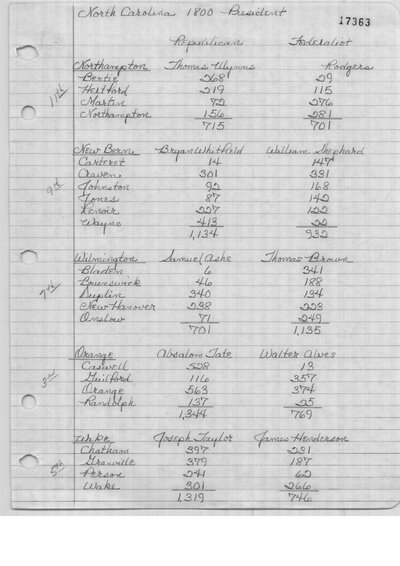 North Carolina 1800 President
17363
Republican Federalist
Northampton Thomas Wynns Rodgers
Bertie 268 29
Hertford 219 115
Martin 72 276
Northampton 156 281
715 701
11th
New Bern Bryan Whitfield William Shephard
Carteret 14 147
Craven 301 331
Johnston 92 168
Jones 87 142
Lenoir 227 122
Wayne 413 22
1,134 932
9th
Wilmington Samuel Ashe Thomas Brown
Bladen 6 341
Brunswick 46 188
Duplin 340 134
New Hanover 238 223
Onslow 71 249
701 1,135
7th
Orange Absalom Tate Walter Alves
Caswell 528 13
Guilford 116 357
Orange 563 374
Randolph 137 25
1,344 769
3rd
Wake Joseph Taylor James Henderson
Chatham 397 231
Granville 379 187
Person 241 62
Wake 301 266
1,319 746
5th